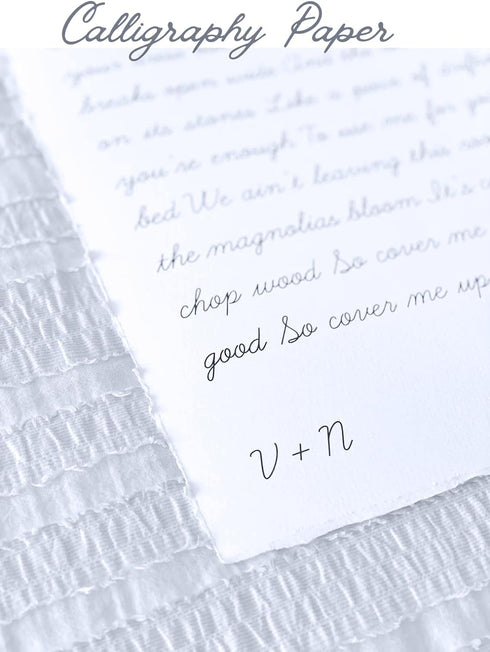 Calligraphy Paper
your
breaks open
on its stones Like a piece of
you're enough To use me for
bed We ain't leaving this
the magnolias bloom It's
chop wood So cover me
good So cover me up
V + N